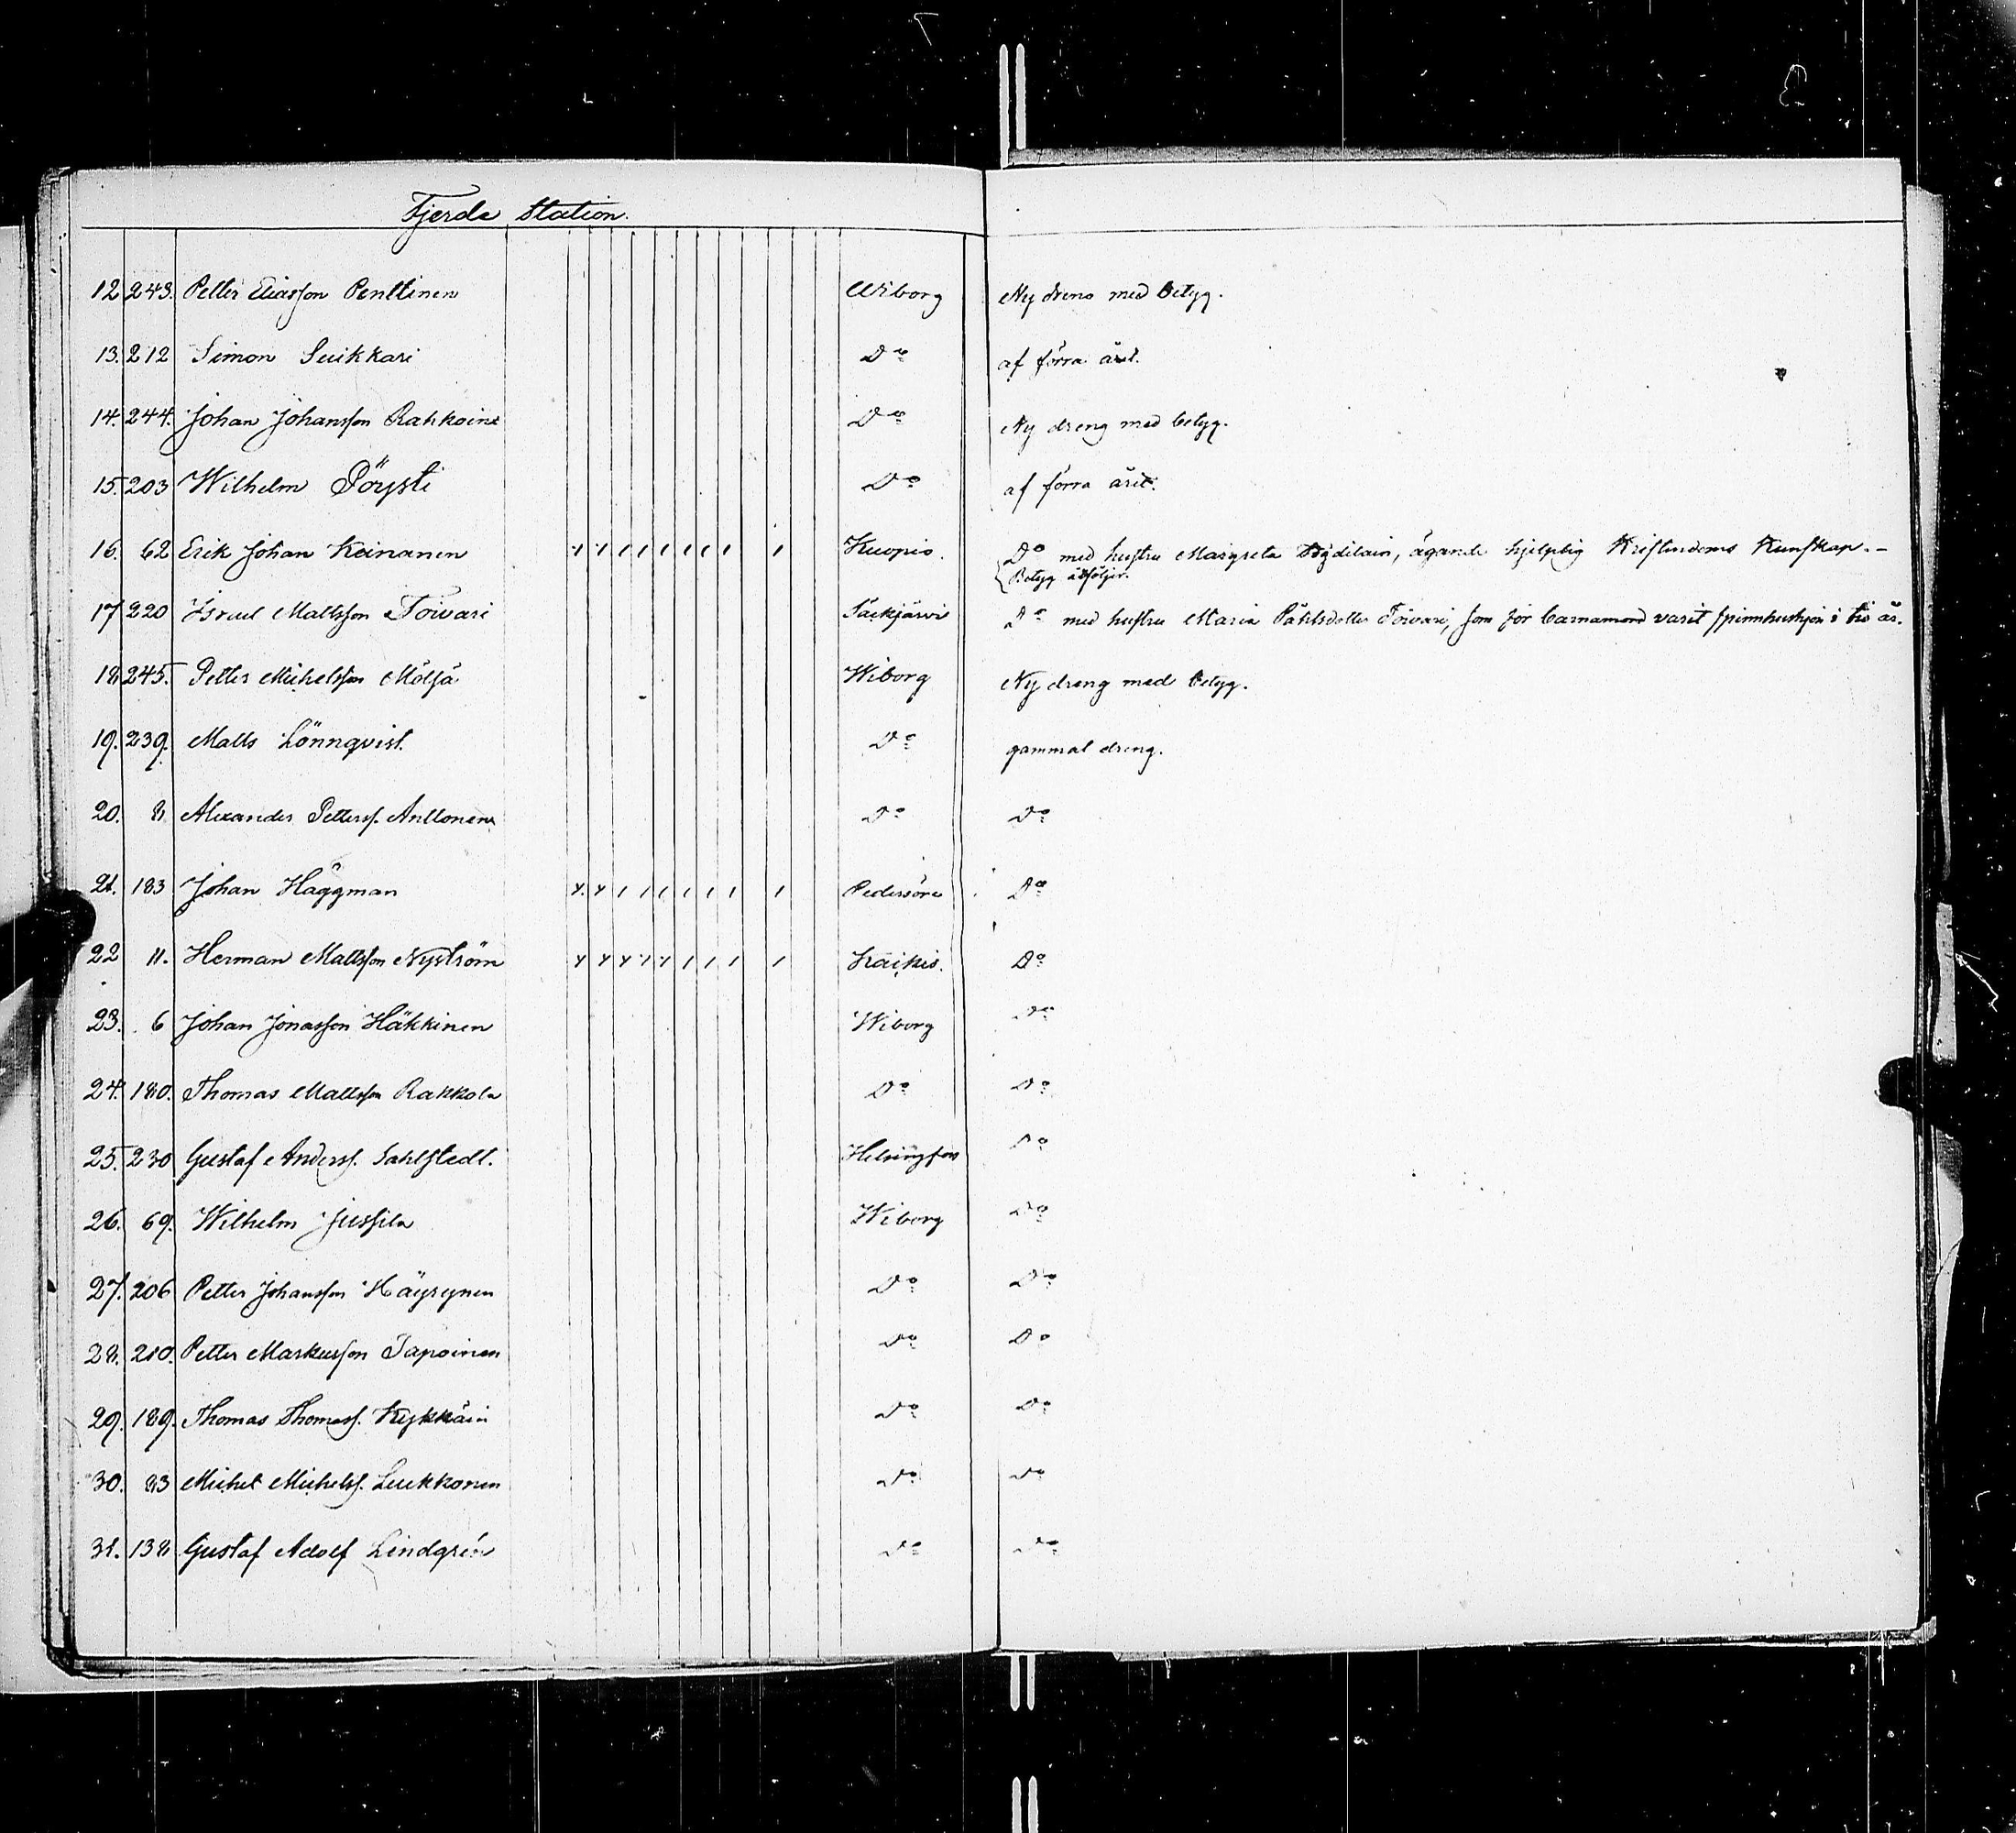 Fjerde Station.
12 243. Petter Eliasson Penttinen Wiborg Ny dreng med betyg.
13. 212 Simon Suikkari Do af förra året.
14. 244. Johan Johansson Rahkoine Do Ny dreng med betyg.
15. 203 Wilhelm Pöysti Do af förra året.
16. 62 Erik Johan Keinanen Y Y 1 1 1 1 1 1 1 Kuopio. Do med hustru Margreta, ägande hjelplig Kristendoms Kunskap. –
Betyg åtföljer.
17 220 Israel Mattsson Toivari Säckjärvi Do med hustru Maria Påhlsdotter Toivari, som för barnamord varit spinnhushjon i tio år.
18 245. Petter Michelsson Mölsä Wiborg Ny dreng med betyg.
19. 239. Matts Lönnqvist. Do gammal dreng.
20. 8 Alexander Petterss. Anttonen Do Do
21. 183 Johan Häggman Y. Y 1 1 1 1 1 1 1 Pedersöre Do
22 11. Herman Mattsson Nyström Y Y Y Y Y 1 1 1 1 Do
23. 6 Johan Jonasson Häkkinen Wiborg Do
24. 180. Thomas Mattsson Rakkola Do Do
25. 230 Gustaf Anderss. Sahlstedt. Helsingfors Do
26. 69. Wilhelm Jussila Wiborg Do
27. 206 Petter Johansson Häyrynen Do Do
28. 210. Petter Markusson Tapoinen Do Do
29. 189. Thomas Thomass. Kykkäin Do Do
30. 83 Michel Michelss. Leukkonen Do Do
31. 138 Gustaf Adolf Lindgrén Do Do